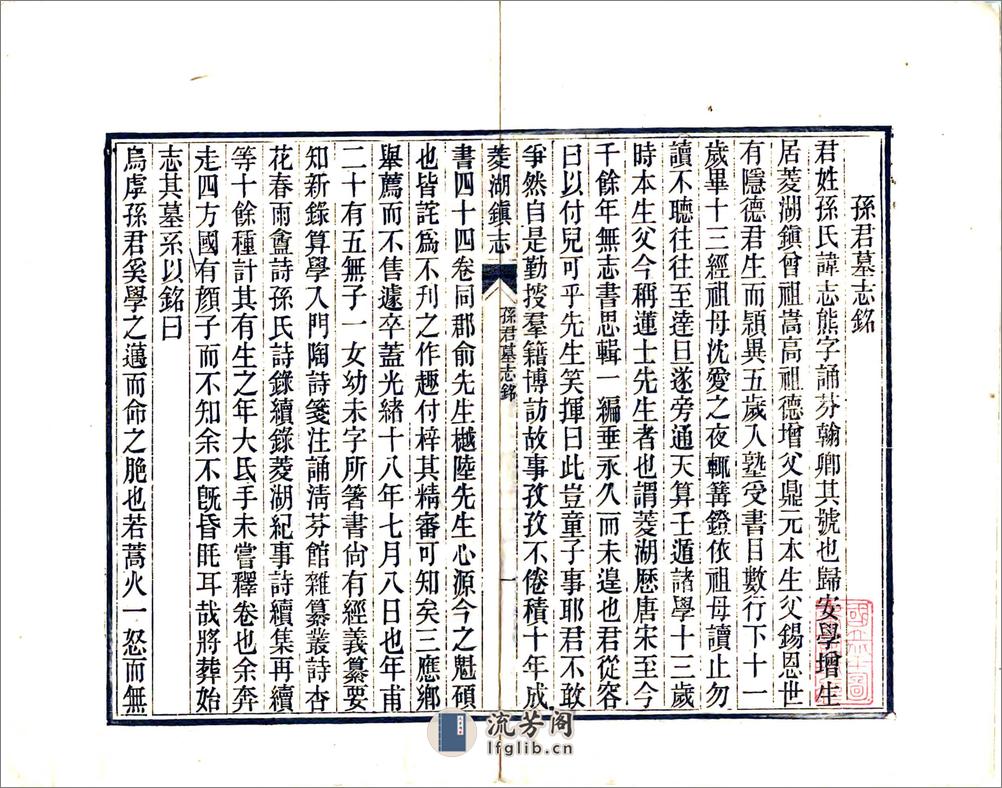 孫君墓志銘
君姓孫氏諱志熊字誦芬翰卿其號也歸安學增生
居菱湖鎮曾祖嵩高祖德增父鼎元本生父錫恩世
有隱德君生而穎異五歲入塾受書日數行下十一
歲畢十三經祖母沈愛之夜輒篝鐙依祖母讀止勿
讀不聽往往至逹旦遂旁通天算壬遁諸學十三歲
時本生父今稱蓮士先生者也謂菱湖歷唐宋至今
千餘年無志書思輯一編垂永久而未遑也君從容
曰以付兒可乎先生笑揮曰此豈童子事耶君不敢
爭然自是勤搜羣籍博訪故事孜孜不倦積十年成
菱湖鎮志
孫君墓志銘
一
書四十四卷同郡俞先生樾陸先生心源今之魁碩
也皆詫爲不刋之作趣付梓其精審可知矣三應鄉
舉薦而不售遽卒蓋光緒十八年七月八日也年甫
二十有五無子一女幼未字所箸書尙有經義纂要
知新錄算學入門陶詩箋注誦淸芬館雜纂叢詩杏
花春雨盦詩孫氏詩錄續錄菱湖紀事詩續集再續
等十餘種計其有生之年大氐手未嘗釋卷也余奔
走四方國有顏子而不知余不旣昏眊耳哉將葬始
志其墓系以銘曰
烏虖孫君奚學之邁而命之脃也若蒿火一怒而無
流芳阁
lfglib.cn